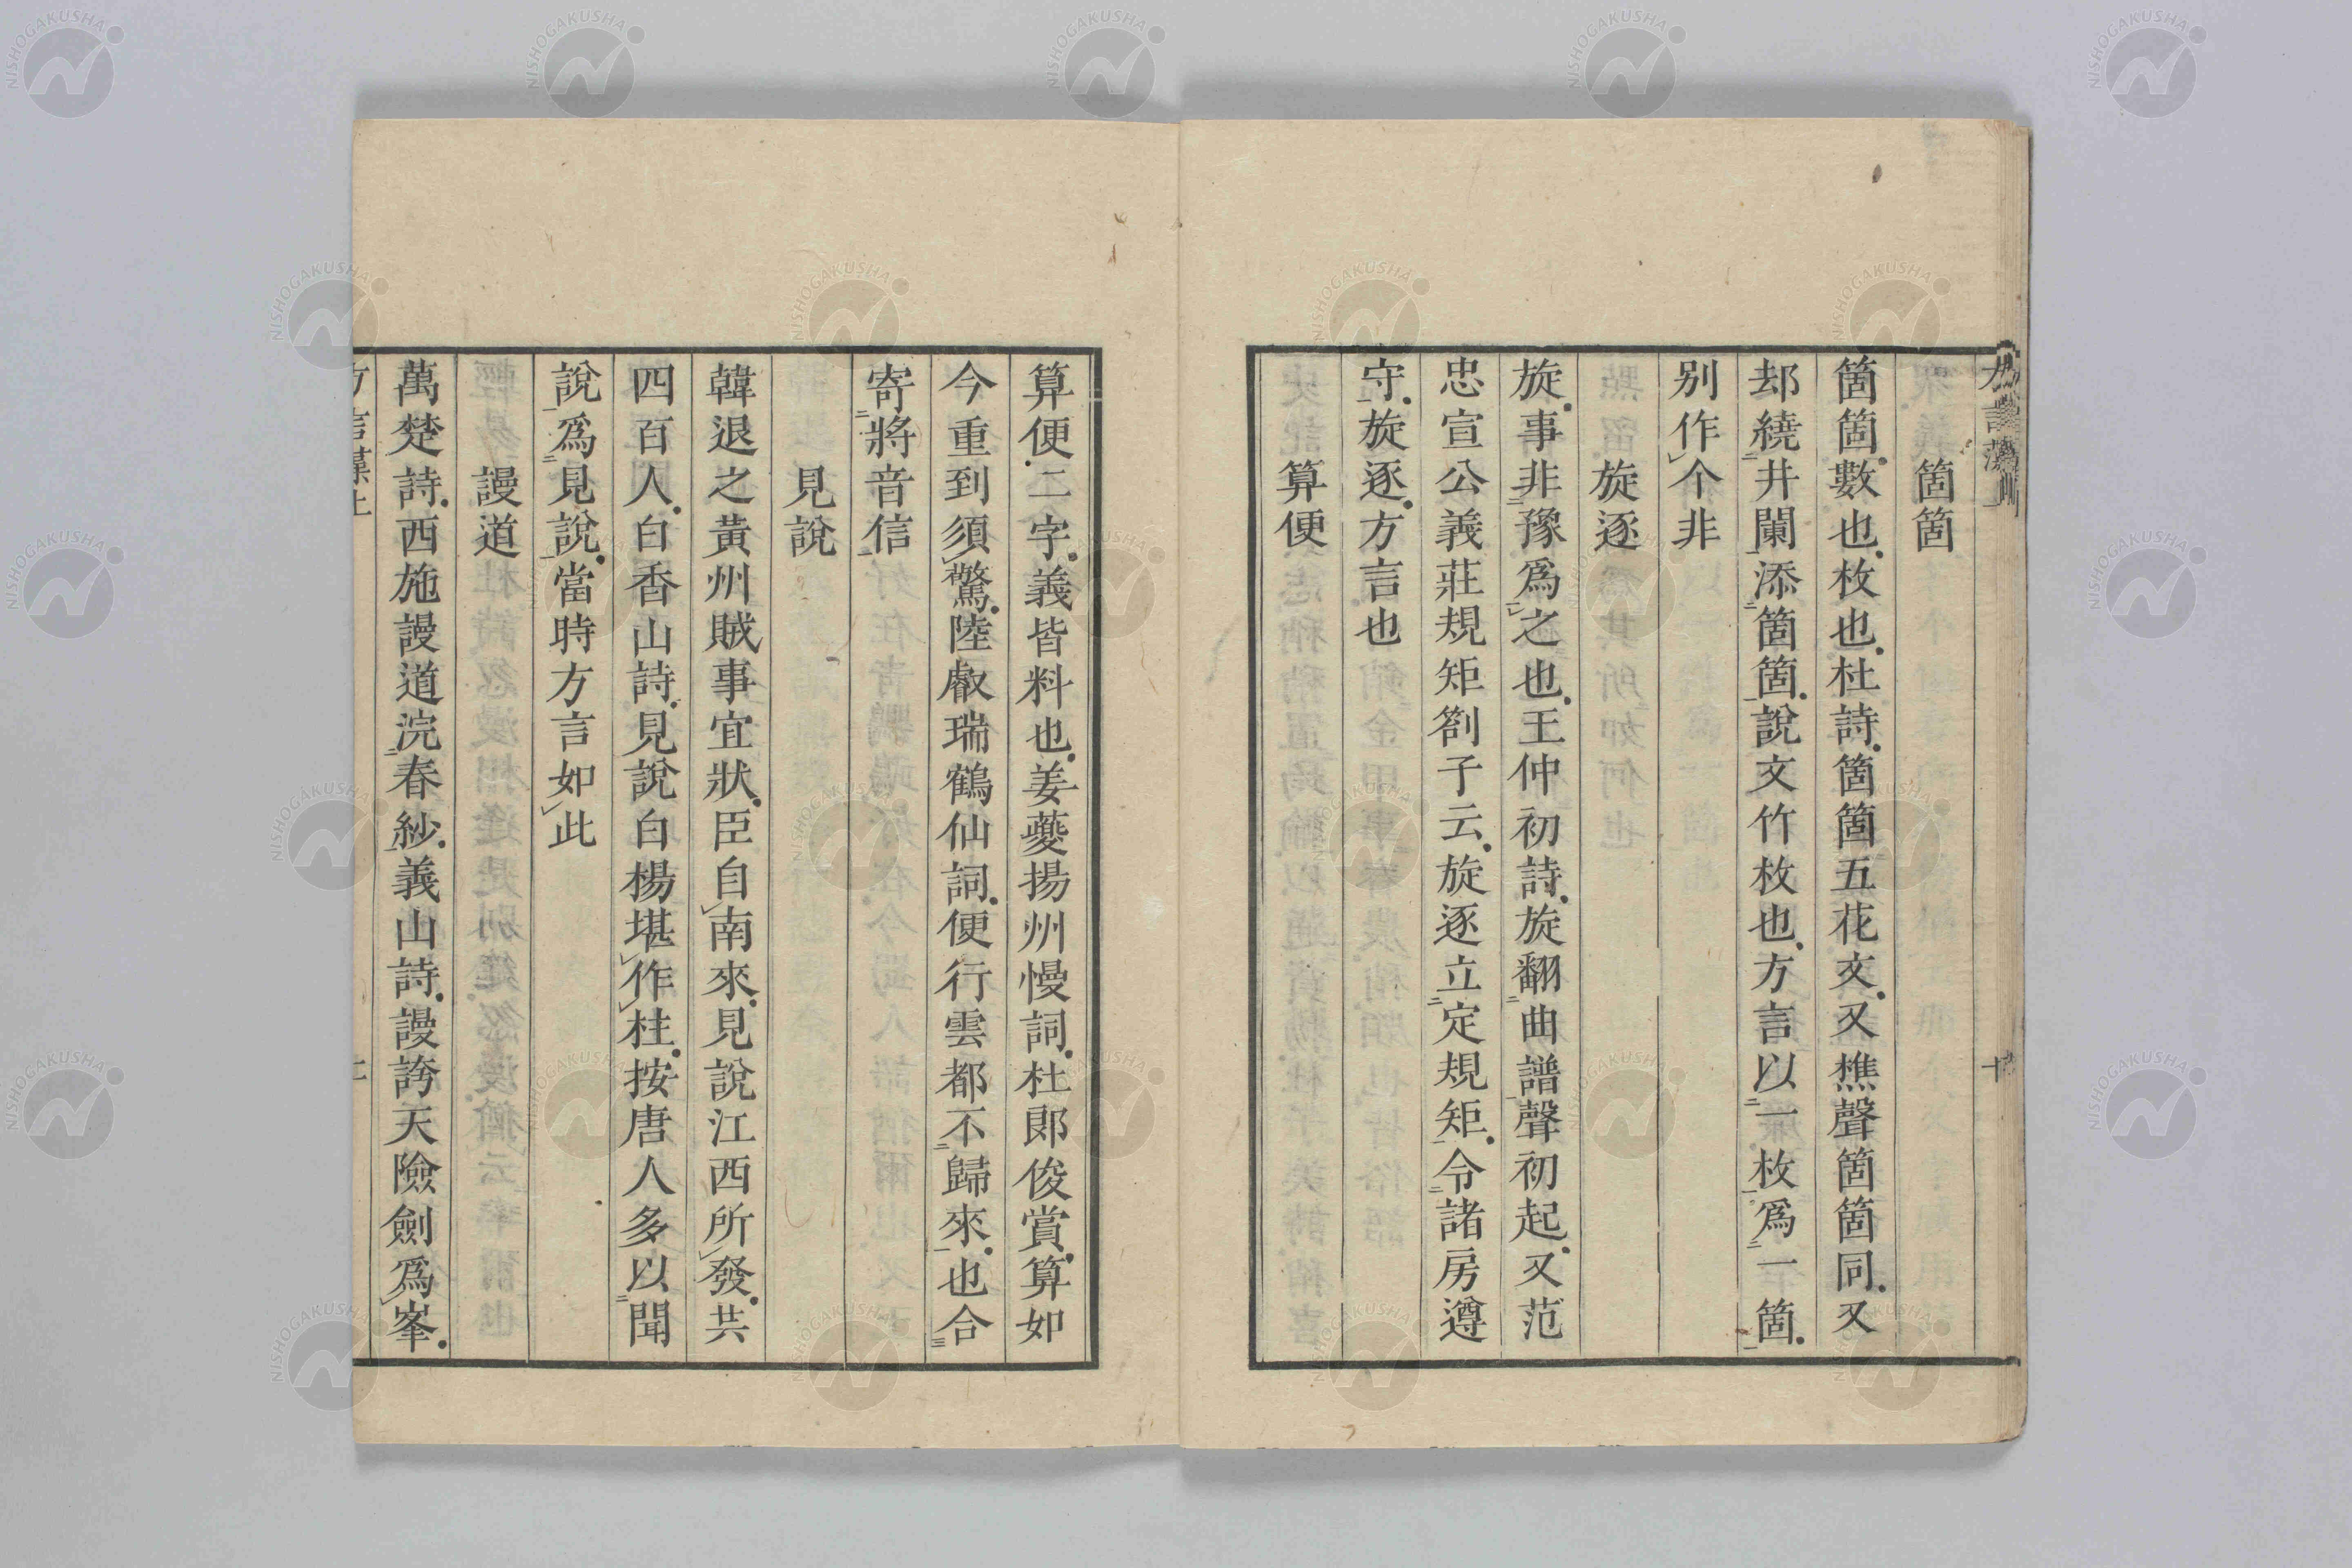 箇箇
箇箇。數也。枚也。杜詩。箇箇五花文。又樵聲箇箇同。又
却繞井闌添箇箇。說文竹枚也。方言以一枚爲一箇。
别作个非
旋逐
旋。事非豫爲之也。王仲初詩。旋翻曲譜聲初起。又范
忠宣公義莊規矩劄子云。旋逐立定規矩。令諸房遵
守。旋逐。方言也
算便
算便。二字。義皆料也。姜夔揚州慢詞。杜郎俊賞。算如
今重到須驚。陸叡瑞鶴仙詞。便行雲都不歸來。也合
寄將音信
見說
韓退之黃州賊事宜狀。臣自南來。見說江西所發。共
四百人。白香山詩。見說白楊堪作柱。按唐人多以聞
說爲見說。當時方言如此
謾道
萬楚詩。西施謾道浣春紗。義山詩。謾誇天險劍爲峯。
NISHOGAKUSHA